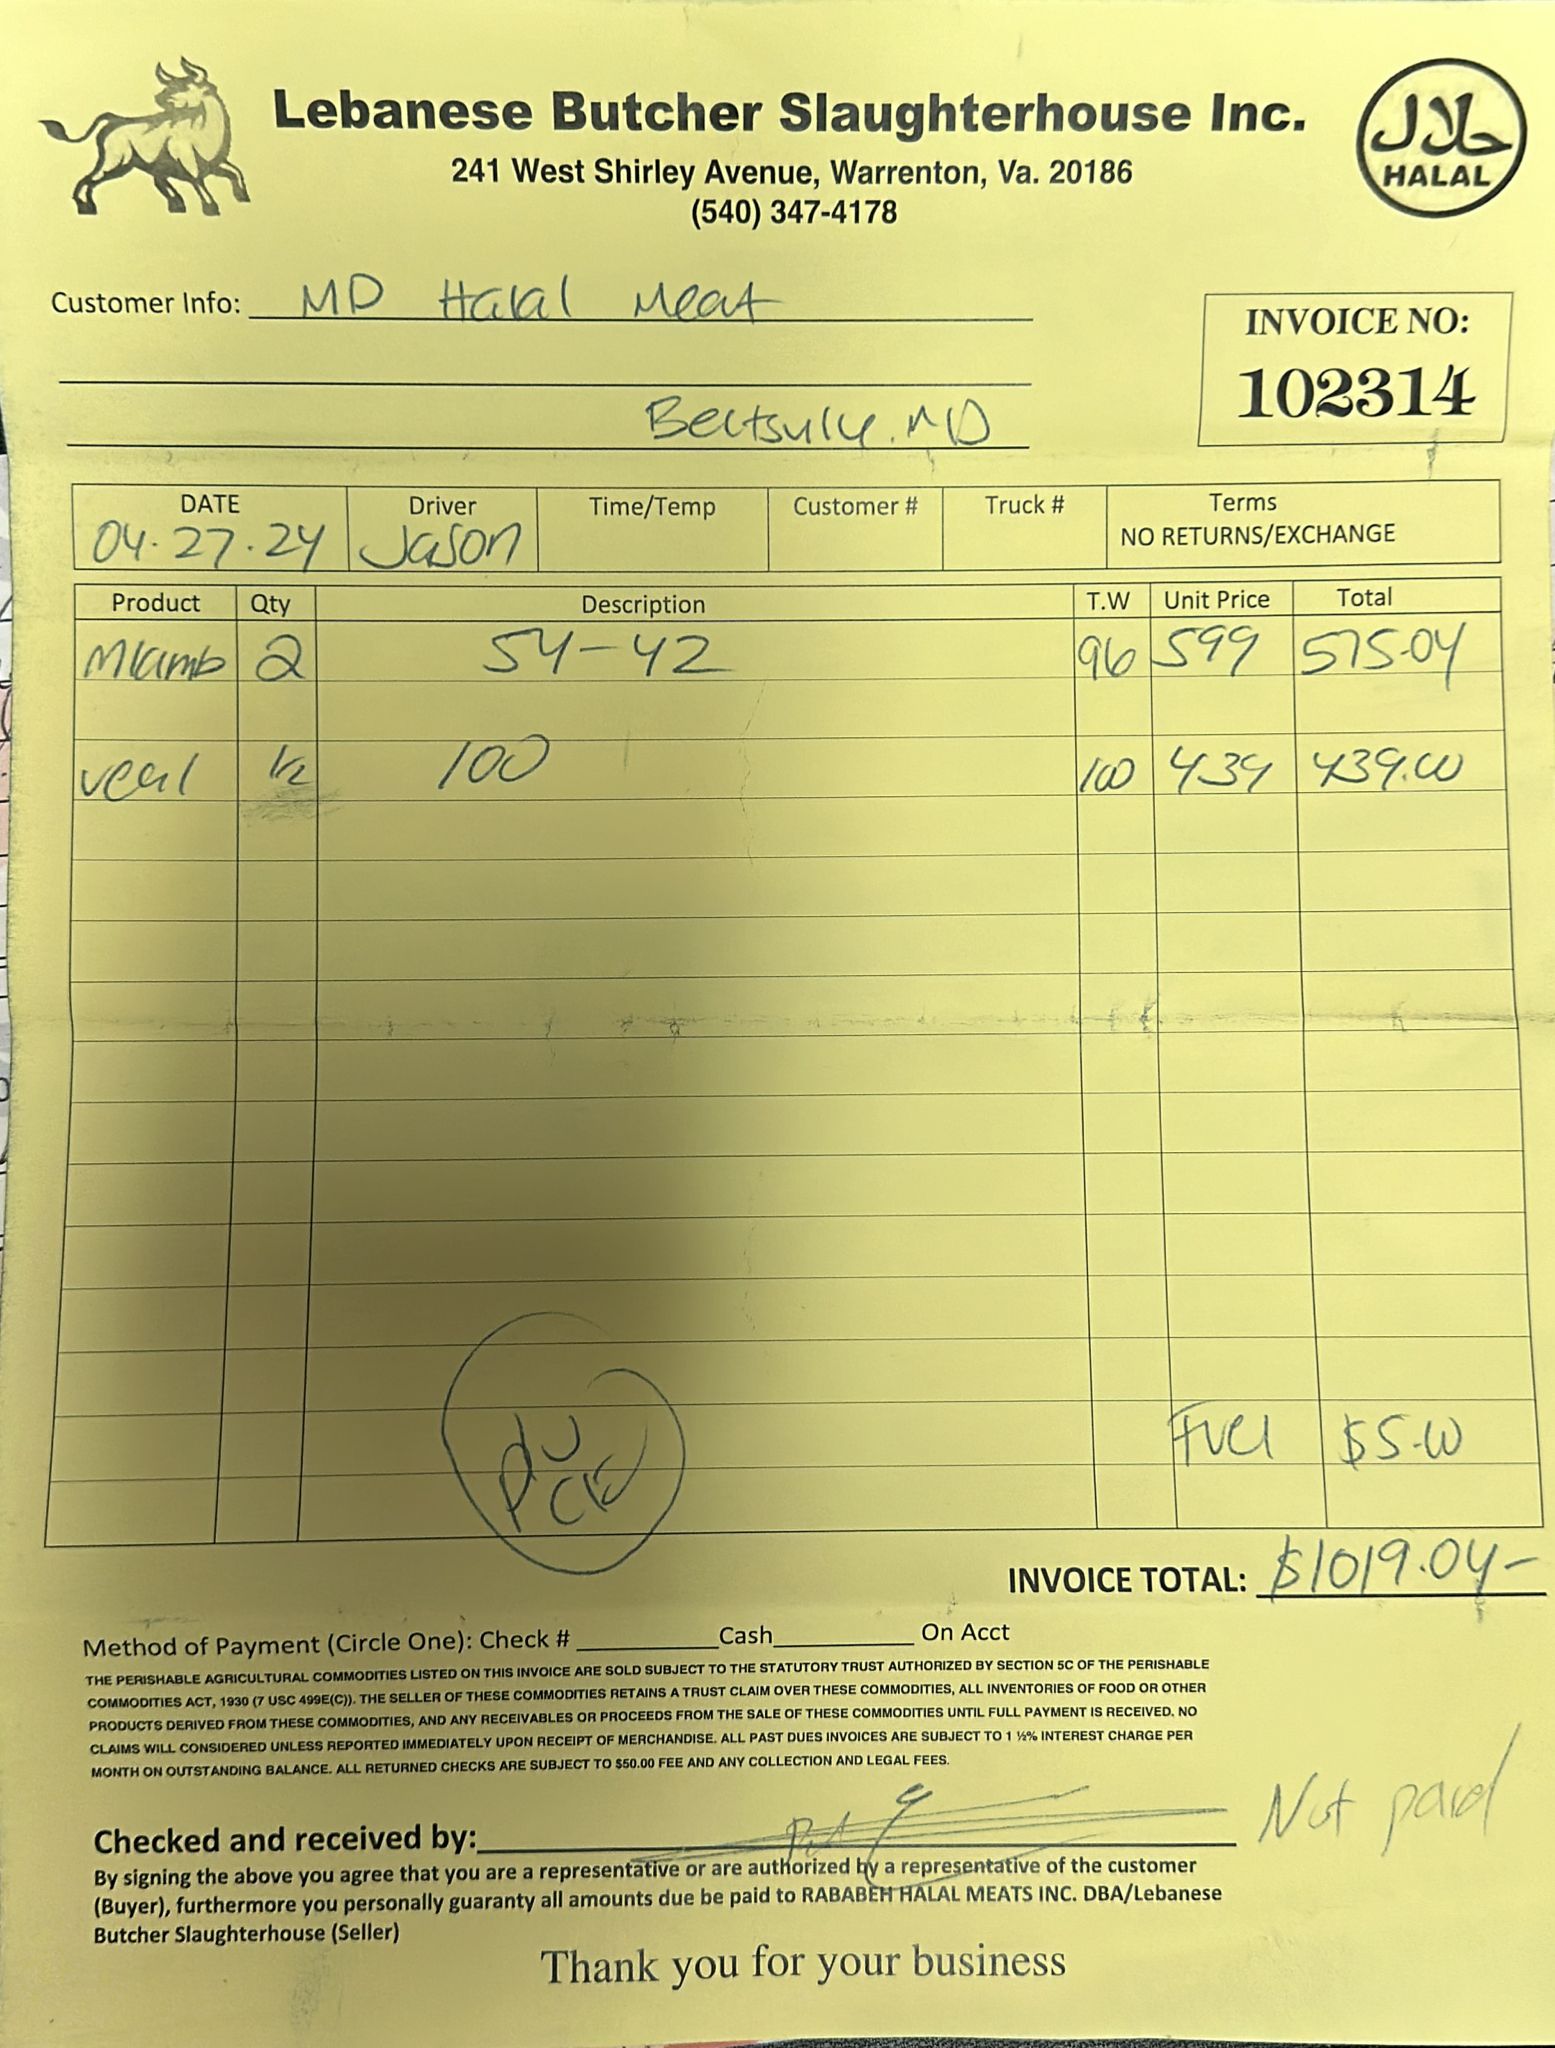 Lebanese Butcher Slaughterhouse Inc.
241 West Shirley Avenue, Warrenton, Va. 20186
(540) 347-4178
حلال
HALAL
Customer Info: MD Halal Meat
INVOICE NO:
102314
Beltsville. MD
DATE Driver Time/Temp Customer # Truck # Terms
04.27.24 Jason NO RETURNS/EXCHANGE
Product Qty Description T.W Unit Price Total
Mlamb 2 54-42 96 599 575.04
veal 1/2 100 100 439 439.00
Fuel $5.00
INVOICE TOTAL: $1019.04-
Method of Payment (Circle One): Check # Cash On Acct
THE PERISHABLE AGRICULTURAL COMMODITIES LISTED ON THIS INVOICE ARE SOLD SUBJECT TO THE STATUTORY TRUST AUTHORIZED BY SECTION 5C OF THE PERISHABLE
COMMODITIES ACT, 1930 (7 USC 499E(C)). THE SELLER OF THESE COMMODITIES RETAINS A TRUST CLAIM OVER THESE COMMODITIES, ALL INVENTORIES OF FOOD OR OTHER
PRODUCTS DERIVED FROM THESE COMMODITIES, AND ANY RECEIVABLES OR PROCEEDS FROM THE SALE OF THESE COMMODITIES UNTIL FULL PAYMENT IS RECEIVED. NO
CLAIMS WILL CONSIDERED UNLESS REPORTED IMMEDIATELY UPON RECEIPT OF MERCHANDISE. ALL PAST DUES INVOICES ARE SUBJECT TO 1 ½% INTEREST CHARGE PER
MONTH ON OUTSTANDING BALANCE. ALL RETURNED CHECKS ARE SUBJECT TO $50.00 FEE AND ANY COLLECTION AND LEGAL FEES.
Not paid
Checked and received by:
By signing the above you agree that you are a representative or are authorized by a representative of the customer
(Buyer), furthermore you personally guaranty all amounts due be paid to RABABEH HALAL MEATS INC. DBA/Lebanese
Butcher Slaughterhouse (Seller)
Thank you for your business